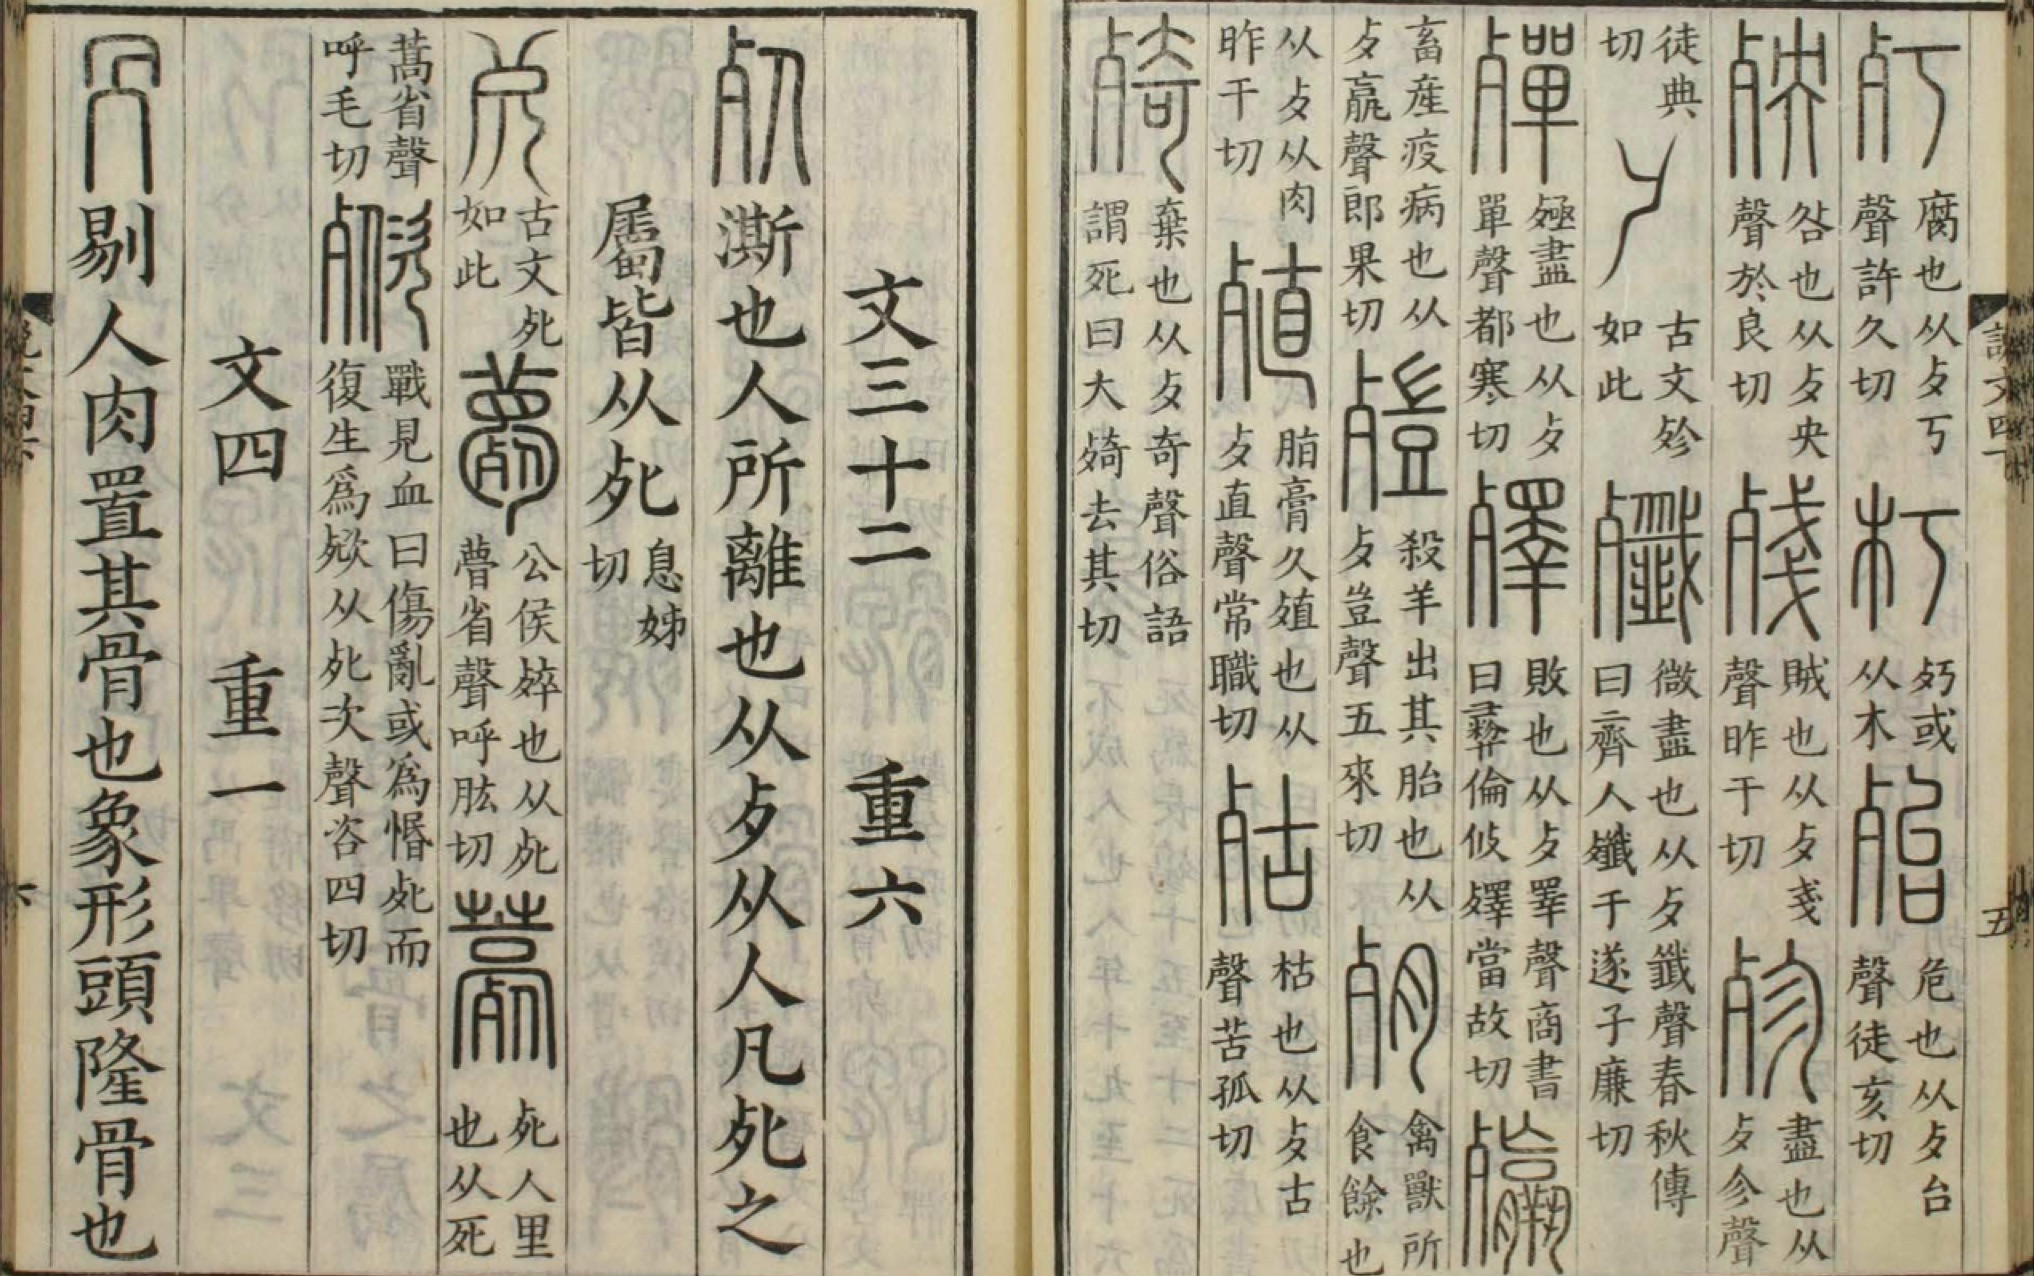 㱙腐也从歺丂聲許久切朽㱙或从木殆危也从歺台聲徒亥切
殃咎也从歺央聲於良切殘賊也从歺戔聲昨干切殄盡也从歺㐱聲
徒典切古文殄如此殲微盡也从歺韱聲春秋傳曰齊人殲于遂子廉切
殫殛盡也从歺單聲都寒切殬敗也从歺睪聲商書曰彝倫攸殬當故切㱻
畜産疫病也从歺羸聲郎果切𣩄殺羊出其胎也从歺豈聲五來切𣧻禽獸所食餘也
从歺从肉昨干切殖脂膏久殖也从歺直聲常職切㱠枯也从歺古聲苦孤切
㱦棄也从歺奇聲俗語謂死曰大㱦去其切
文三十二 重六
死澌也人所離也从歺从人凡死之
屬皆从死息姊切
古文死如此薨公侯𣨛也从死瞢省聲呼肱切薧死人里也从死
蒿省聲呼毛切𣩠戰見血曰傷亂或爲惽死而復生爲𣩠从死次聲咨四切
文四 重一
冎剔人肉置其骨也象形頭隆骨也